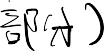 部分)